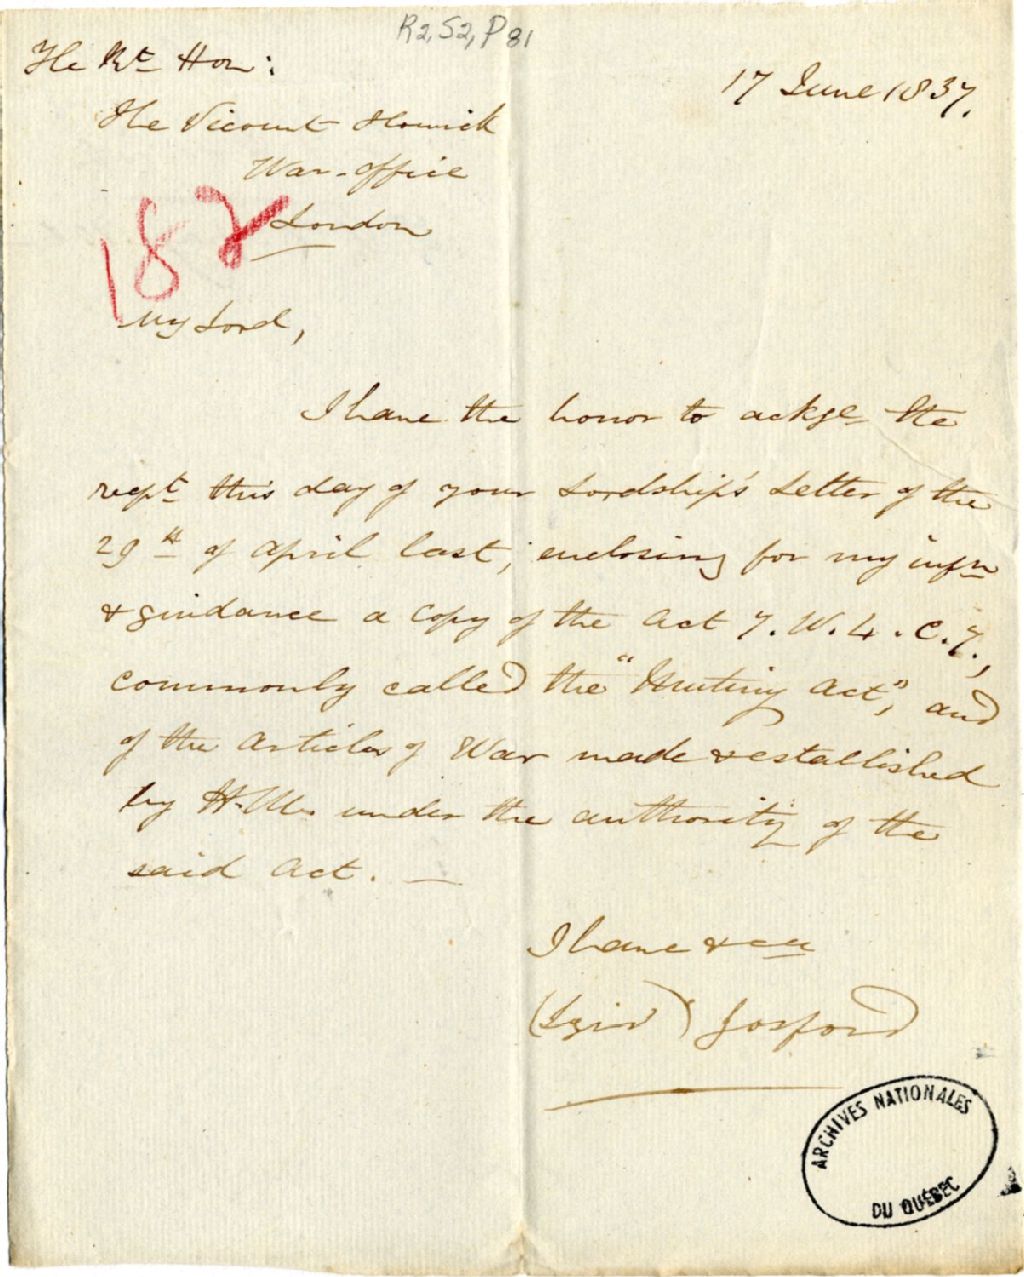 R2, S2, P81
The Rt Hon:
17 June 1837.
The Vicount Howick
War-Office
London
182
My Lord,
I have the honor to ackge the
recpt this day of your Lordship's Letter of the
29th of April last, enclosing for my infn
& guidance a Copy of the Act 7. W. 4. C. 7.,
commonly called the "Mutiny Act", and
of the Articles of War made & established
by H.M. under the authority of the
said Act. —
I have &ca
(Signd) Gosford
ARCHIVES NATIONALES
DU QUÉBEC